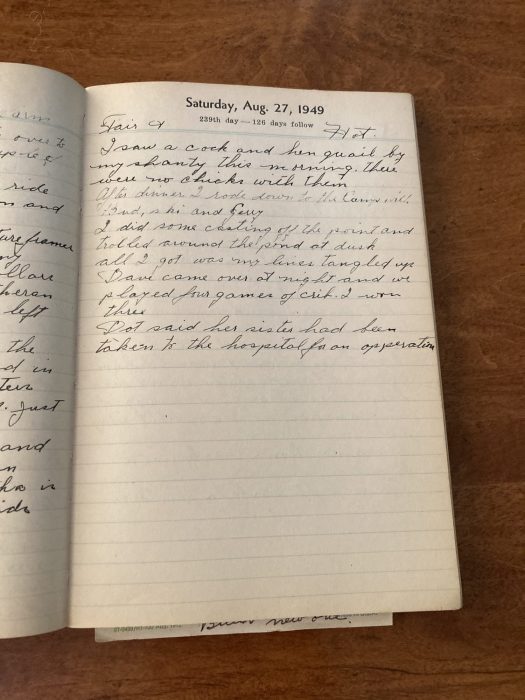 Saturday, Aug. 27, 1949
239th day — 126 days follow
Fair & Hot
I saw a cock and hen quail by
my shanty this morning. there
were no chicks with them
After dinner I rode down to the Camp with
Bud, ski and Gerry
I did some casting off the point and
trolled around the pond at dusk
all I got was my lines tangled up
Dave came over at night and we
played four games of crib. I won
three
Dot said her sister had been
taken to the hospital for an opperation
over to
ride
and
ture framer
left
the
d in
. Just
and
is
new one.